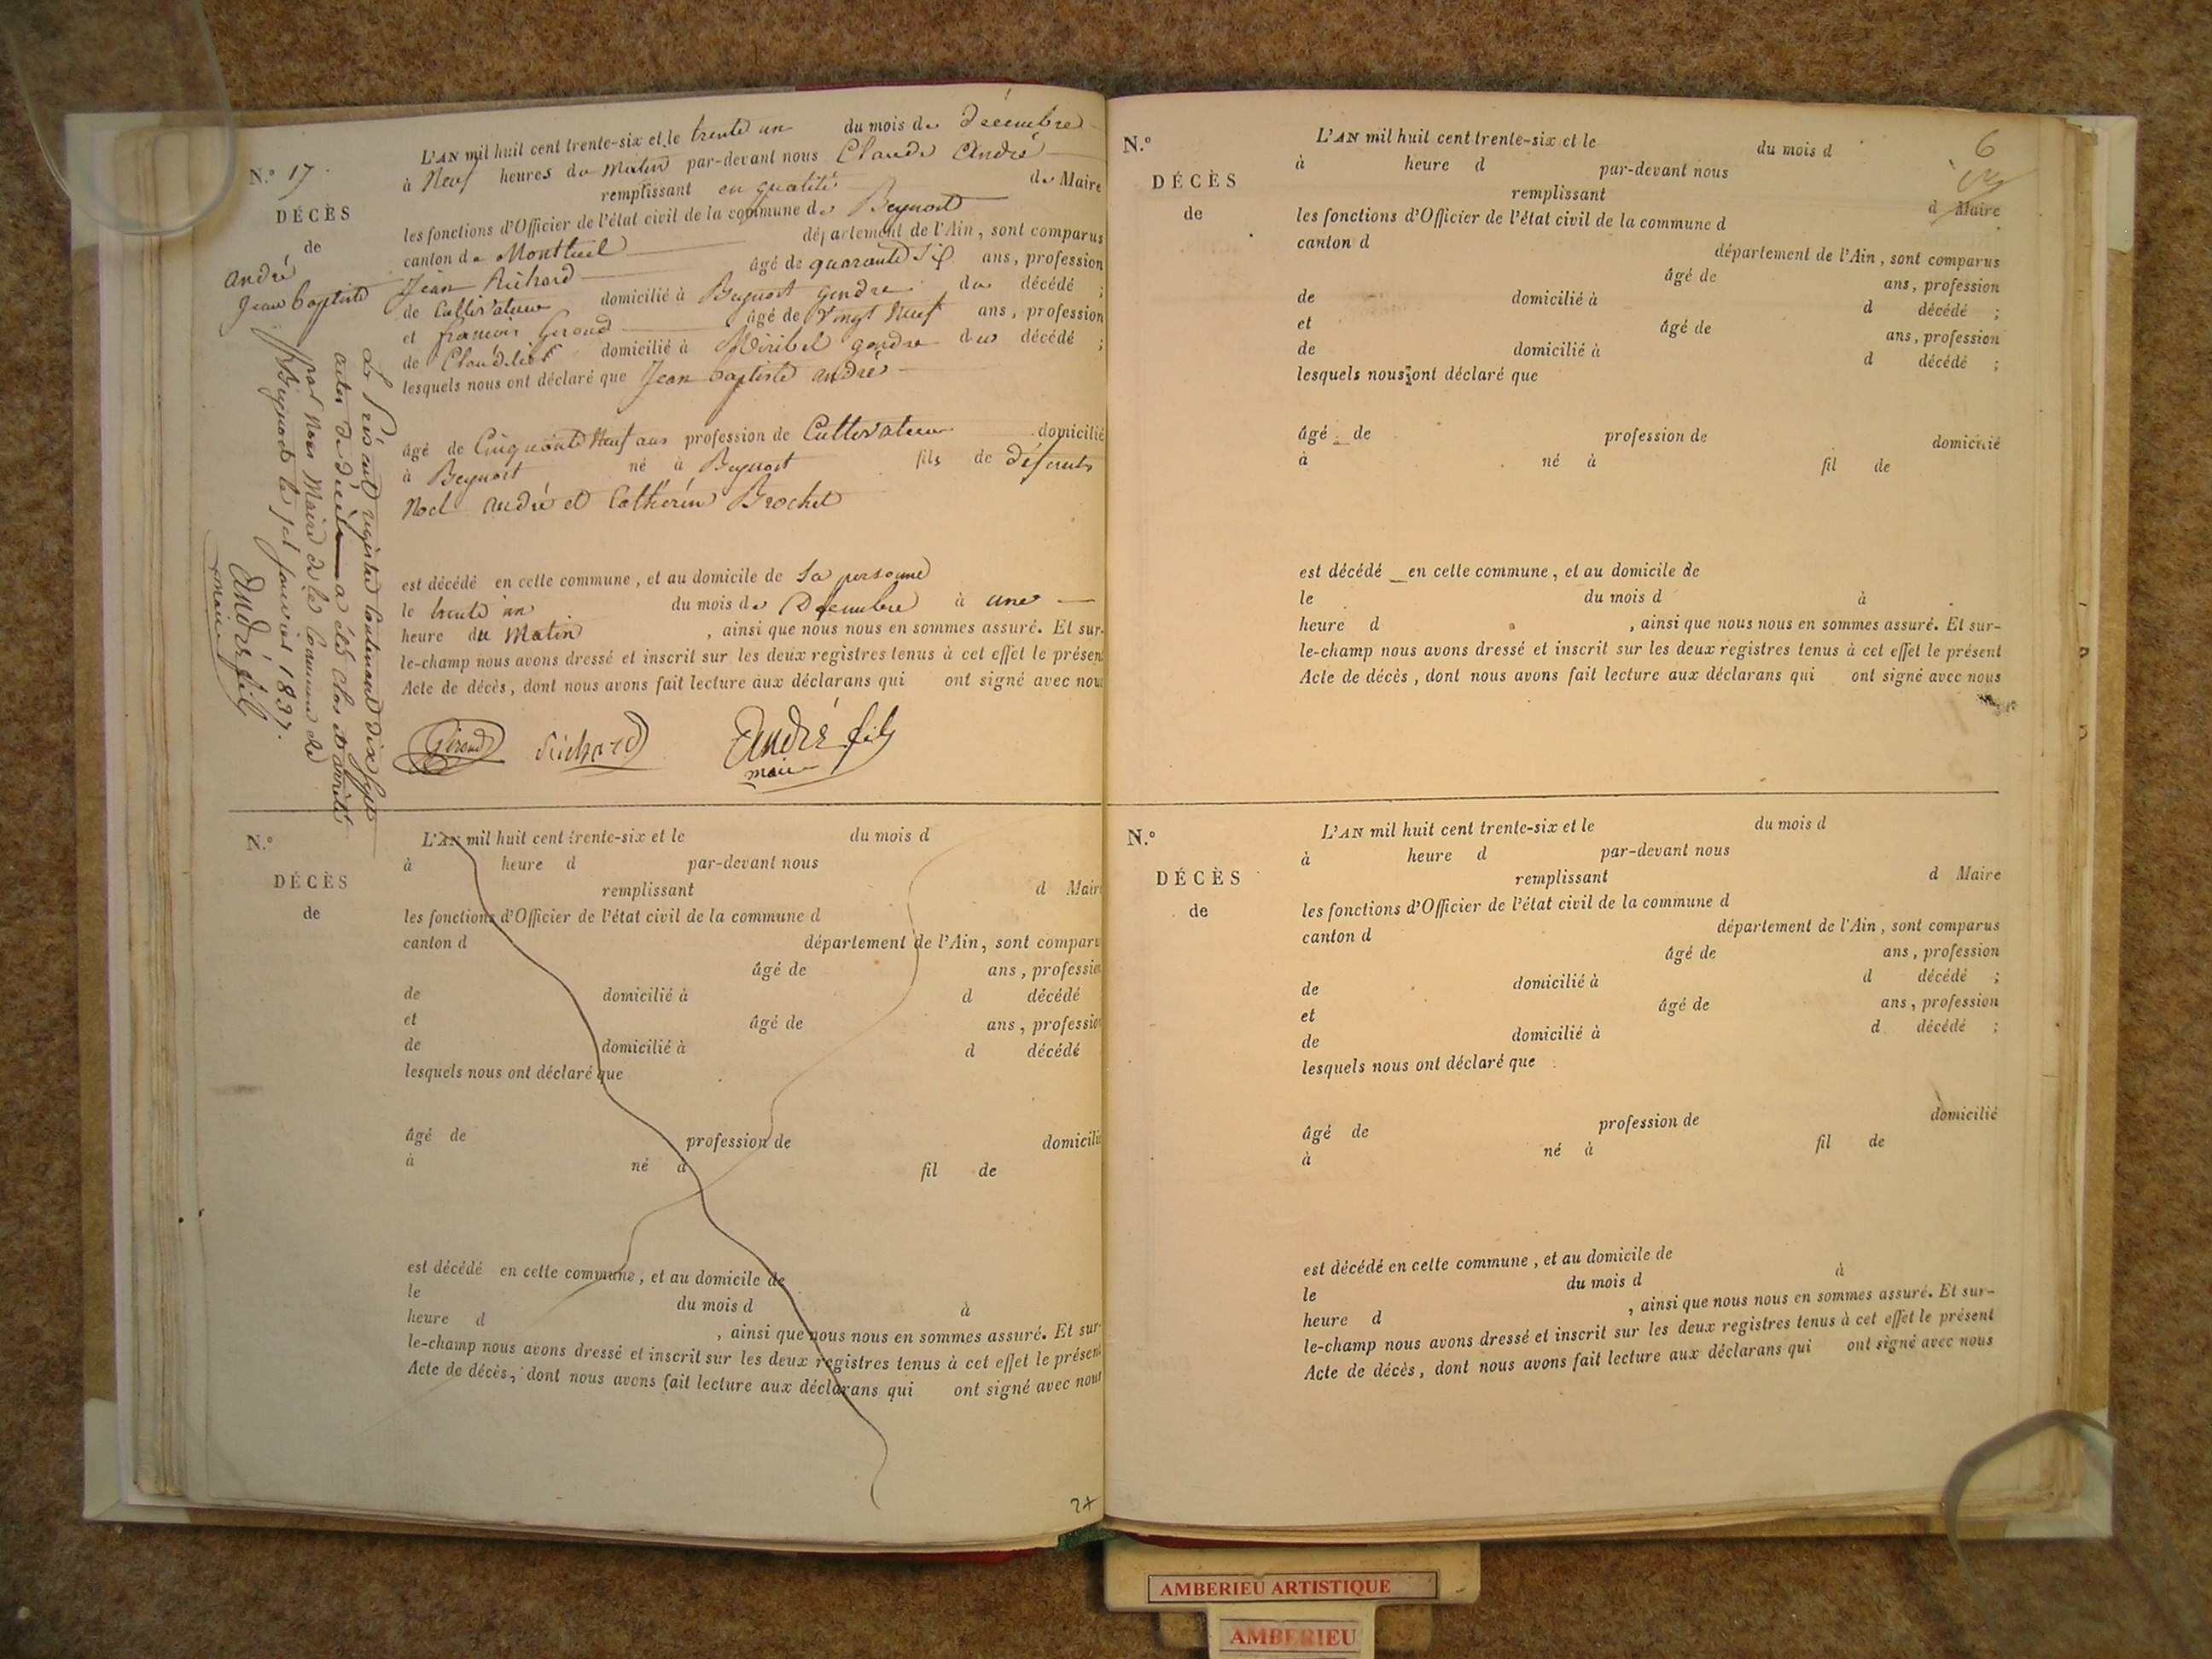 N.° 17.
DÉCÈS
de
André
Jean baptiste
L'AN mil huit cent trente-six et le trente un du mois de décembre
à Neuf heures du Matin par-devant nous Claude André
remplissant en qualité de Maire
les fonctions d'Officier de l'état civil de la commune de Beynost
canton de Montluel département de l'Ain, sont comparus
Jean Richard âgé de quarante six ans, profession
de Cultivateur domicilié à Beynost gendre du décédé ;
et francois Geroud âgé de Vingt Neuf ans, profession
de domicilié à Miribel gendre du décédé ;
lesquels nous ont déclaré que Jean baptiste andré
âgé de Cinquante Neuf ans profession de Cultivateur domicilié
à Beynost né à Beynost fils de défunts
Noel andré et Catherin Brochet
est décédé en cette commune, et au domicile de Sa personne
le trente un du mois de Décembre à une
heure du Matin , ainsi que nous nous en sommes assuré. Et sur-
le-champ nous avons dressé et inscrit sur les deux registres tenus à cet effet le présent
Acte de décès, dont nous avons fait lecture aux déclarans qui ont signé avec nous
Géroud Richard André fils
maire
Le Présent registre Contenant dix Sept
actes de décès a été clos et arrêté
par Nous Maire de la Commune de
Beynost le 1er janvier 1837.
André fils
maire
N.°
DÉCÈS
de
L'AN mil huit cent trente-six et le du mois d
à heure d par-devant nous
remplissant d Maire
les fonctions d'Officier de l'état civil de la commune d
canton d département de l'Ain, sont comparu
âgé de ans, profession
de domicilié à d décédé
et âgé de ans, profession
de domicilié à d décédé
lesquels nous ont déclaré que
âgé de profession de domicilié
à né à fil de
est décédé en cette commune, et au domicile de
le du mois d à
heure d , ainsi que nous nous en sommes assuré. Et sur-
le-champ nous avons dressé et inscrit sur les deux registres tenus à cet effet le présent
Acte de décès, dont nous avons fait lecture aux déclarans qui ont signé avec nous
27
6
N.°
DÉCÈS
de
L'AN mil huit cent trente-six et le du mois d
à heure d par-devant nous
remplissant d Maire
les fonctions d'Officier de l'état civil de la commune d
canton d département de l'Ain, sont comparus
âgé de ans, profession
de domicilié à d décédé ;
et âgé de ans, profession
de domicilié à d décédé ;
lesquels nous ont déclaré que
âgé de profession de domicilié
à né à fil de
est décédé en cette commune, et au domicile de
le du mois d à
heure d , ainsi que nous nous en sommes assuré. Et sur-
le-champ nous avons dressé et inscrit sur les deux registres tenus à cet effet le présent
Acte de décès, dont nous avons fait lecture aux déclarans qui ont signé avec nous
N.°
DÉCÈS
de
L'AN mil huit cent trente-six et le du mois d
à heure d par-devant nous
remplissant d Maire
les fonctions d'Officier de l'état civil de la commune d
canton d département de l'Ain, sont comparus
âgé de ans, profession
de domicilié à d décédé ;
et âgé de ans, profession
de domicilié à d décédé ;
lesquels nous ont déclaré que
âgé de profession de domicilié
à né à fil de
est décédé en cette commune, et au domicile de
le du mois d à
heure d , ainsi que nous nous en sommes assuré. Et sur-
le-champ nous avons dressé et inscrit sur les deux registres tenus à cet effet le présent
Acte de décès, dont nous avons fait lecture aux déclarans qui ont signé avec nous
AMBERIEU ARTISTIQUE
AMBERIEU